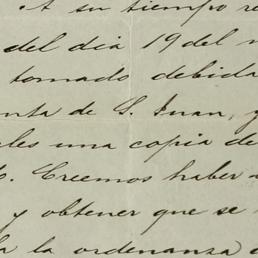 A su tiempo re
del dia 19 del m
tomado debida
nta de S. Juan, y
les una copia de
Creemos haber
y obtener que se
la la ordenanza